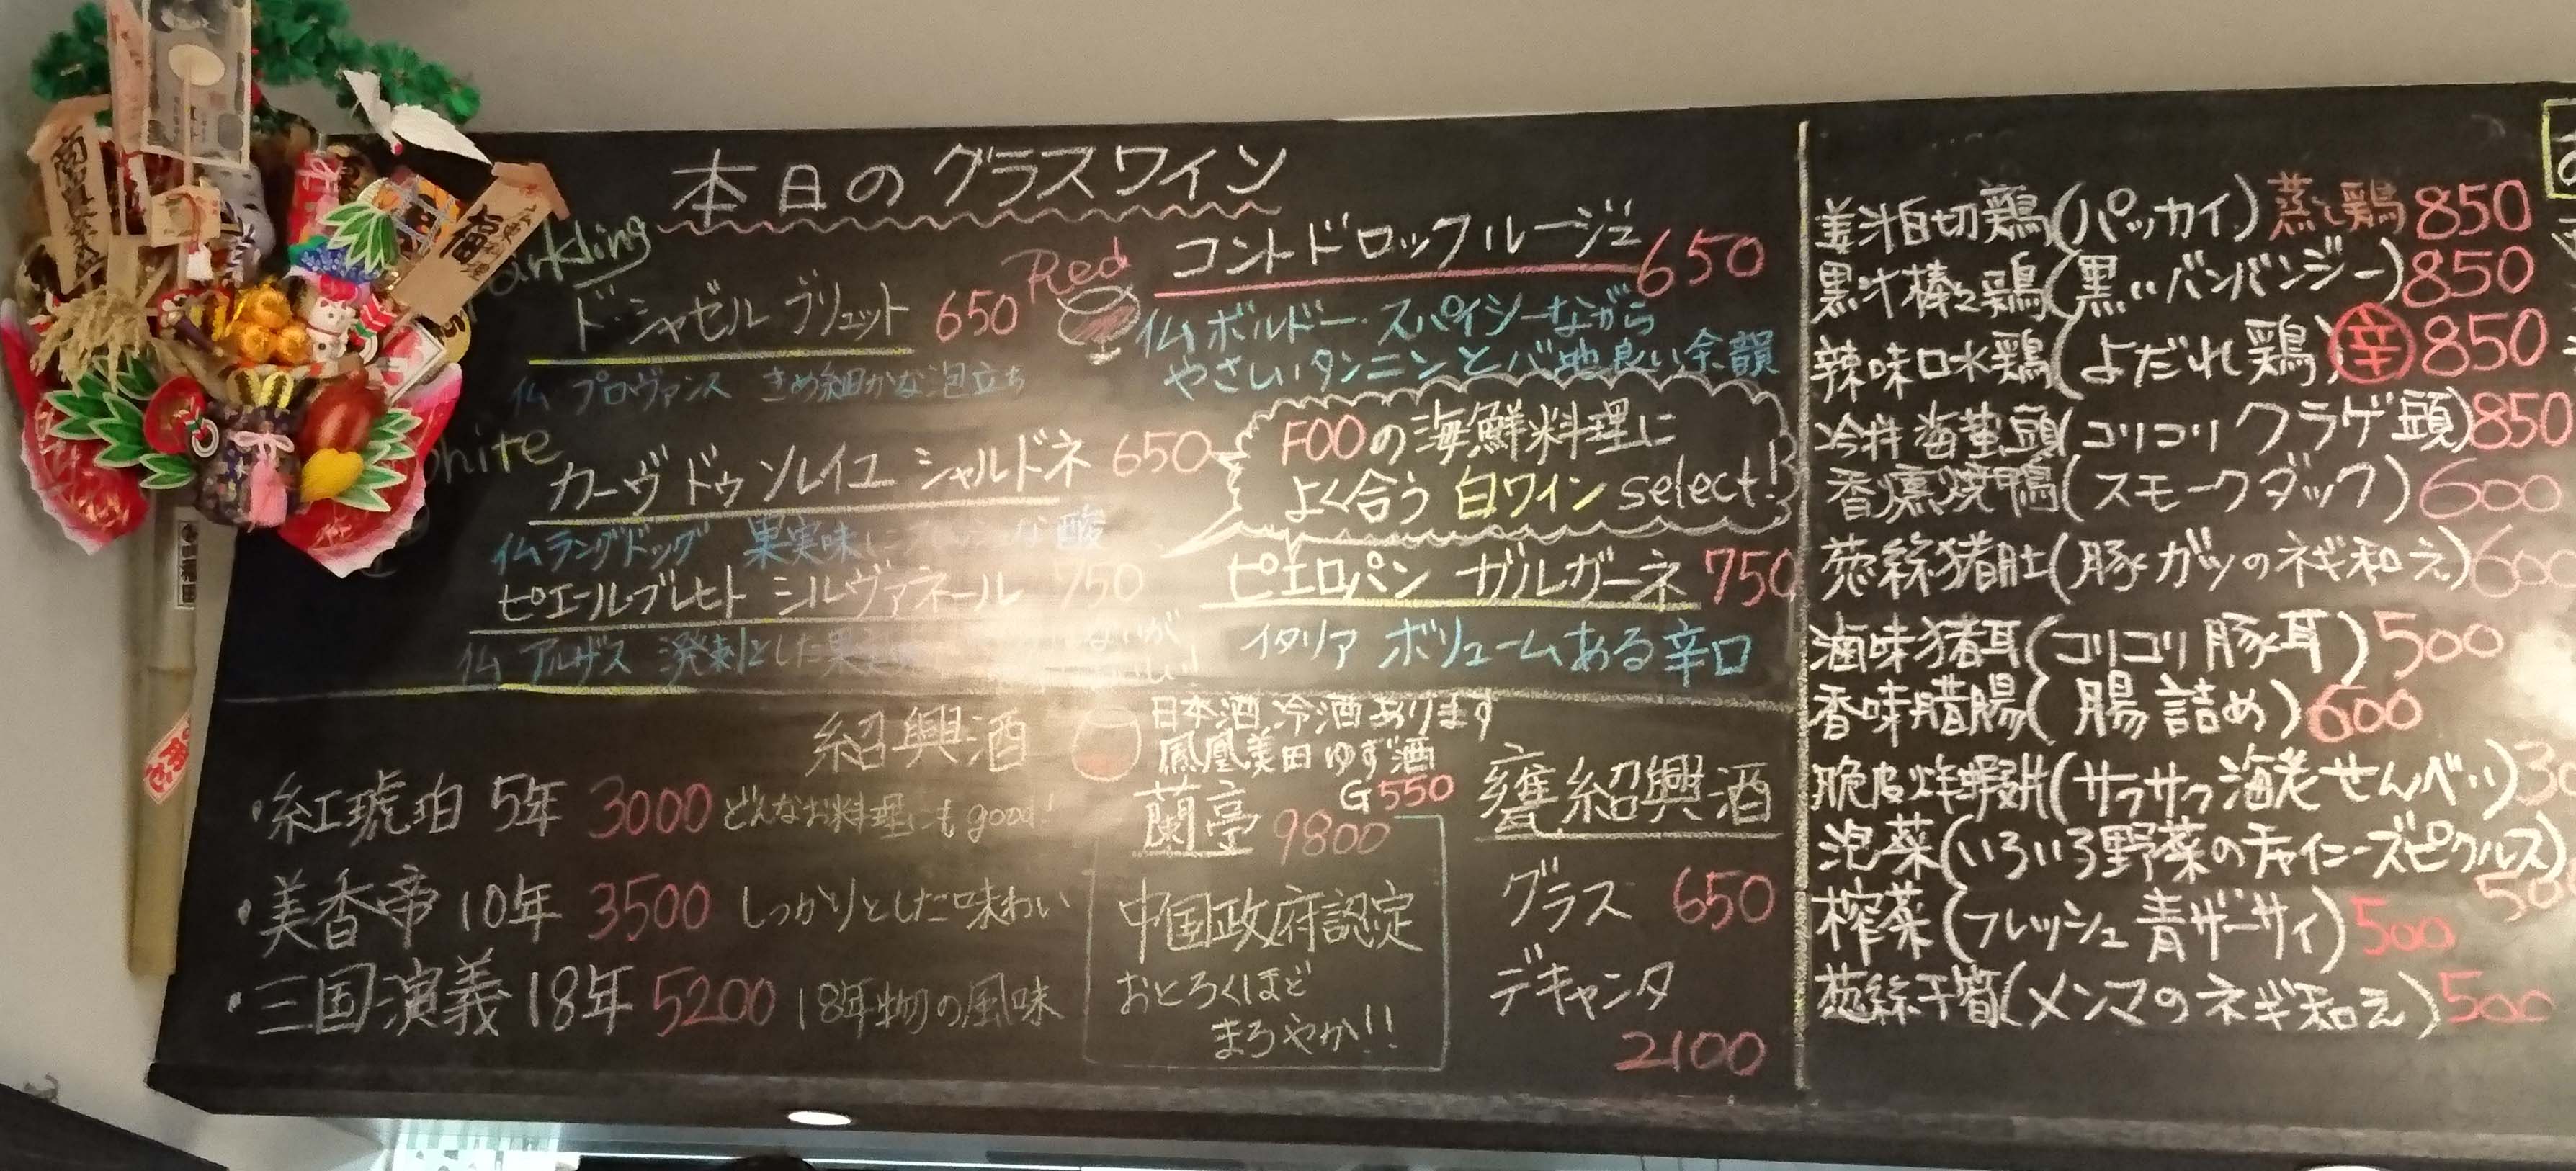 本日のグラスワイン
arkling
ド・シャゼル ブリュット 650
仏 プロヴァンス きめ細かな泡立ち
Red
コントドロックルージュ 650
仏 ボルドー・スパイシーながら
やさしいタンニンと心地良い余韻
hite
カーヴ ドゥ ソレイユ シャルドネ 650
仏 ラングドッグ 果実味に な酸
ピエールブレヒト シルヴァネール 750
仏 アルザス 溌剌とした果
FOOの海鮮料理に
よく合う 白ワイン select!
ピエロパン ガルガーネ 750
イタリア ボリュームある辛口
紹興酒
・紅琥珀 5年 3000 どんなお料理にも good!
・美香帝 10年 3500 しっかりとした味わい
・三国演義 18年 5200 18年物の風味
日本酒 冷酒あります
鳳凰美田 ゆず酒
G550
蘭亭 9800
中国政府認定
おどろくほど
まろやか!!
甕紹興酒
グラス 650
デキャンタ
2100
姜汁白切鶏(パッカイ)蒸し鶏 850
黒汁棒々鶏(黒いバンバンジー)850
辣味口水鶏(よだれ鶏)辛 850
冷拌海蜇頭(コリコリクラゲ頭)850
香燻焼鴨(スモークダック)600
葱絲猪肚(豚ガツのネギ和え)600
滷味猪耳(コリコリ豚耳)500
香味腊腸(腸詰め)600
脆皮炸蝦片(サクサク海老せんべい)30
泡菜(いろいろ野菜のチャイニーズピクルス)
50
榨菜(フレッシュ青ザーサイ)500
葱絲干筍(メンマのネギ和え)500
商売繁盛
福